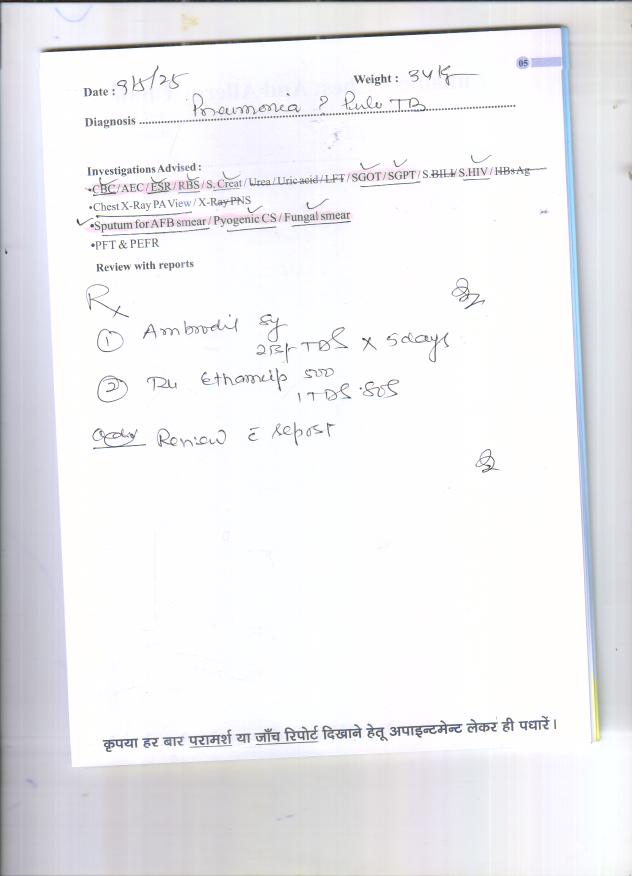 05
Date : 9/5/25 Weight : 34 kg
Diagnosis Pneumonia ? Pulo TB
Investigations Advised :
•CBC / AEC / ESR / RBS / S. Creat / Urea / Uric acid / LFT / SGOT / SGPT / S.BILI / S.HIV / HBs Ag
•Chest X-Ray PA View / X-Ray PNS
•Sputum for AFB smear / Pyogenic CS / Fungal smear
•PFT & PEFR
Review with reports
Rx
① Ambrodil Sy
TDS x 5days
② 500
1 TDS SOS
Review c̄ report
कृपया हर बार परामर्श या जाँच रिपोर्ट दिखाने हेतू अपाइन्टमेन्ट लेकर ही पधारें।